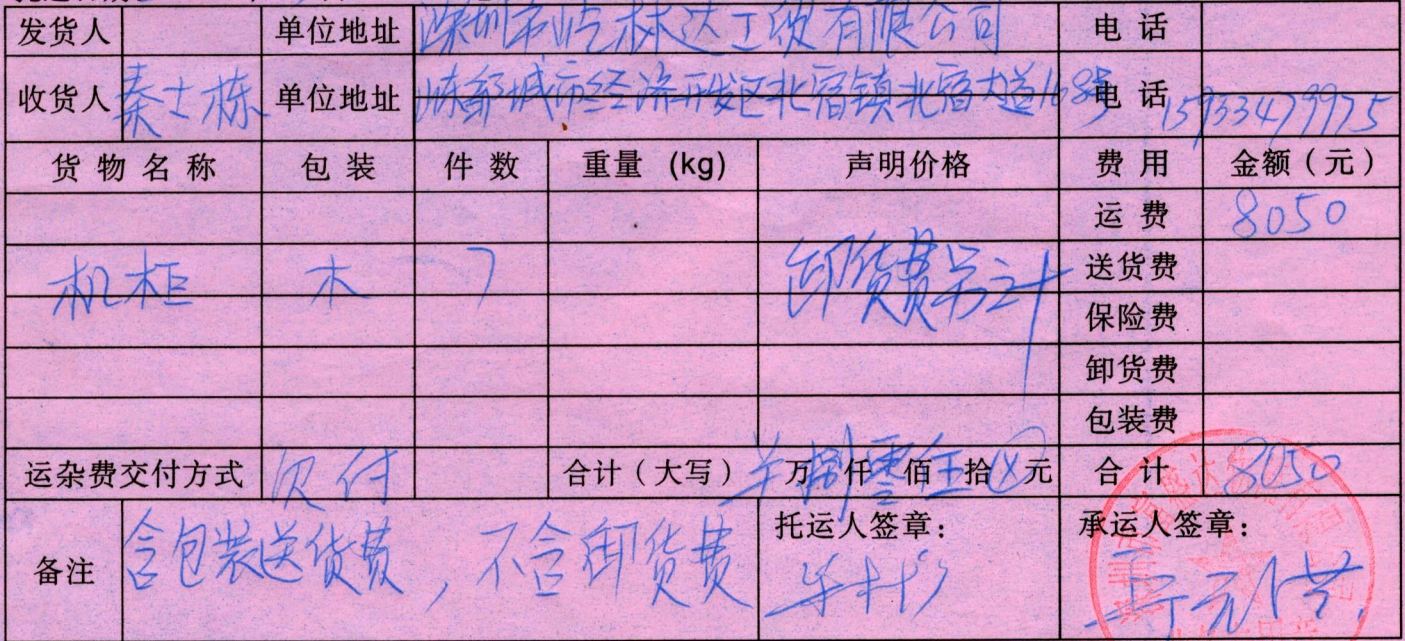 发货人 单位地址 深圳市屹林达工贸有限公司 电话
收货人 秦士栋 单位地址 邹城市经济开发区北宿镇北宿大道168号 电话 15933479975
货物名称 包装 件数 重量 (kg) 声明价格 费用 金额(元)
运费 8050
机柜 木 7 卸货费另计 送货费
保险费
卸货费
包装费
运杂费交付方式 欠付 合计(大写) 万捌仟零佰伍拾元 合计 8050
备注 含包装送货费,不含卸货费 托运人签章: 承运人签章: